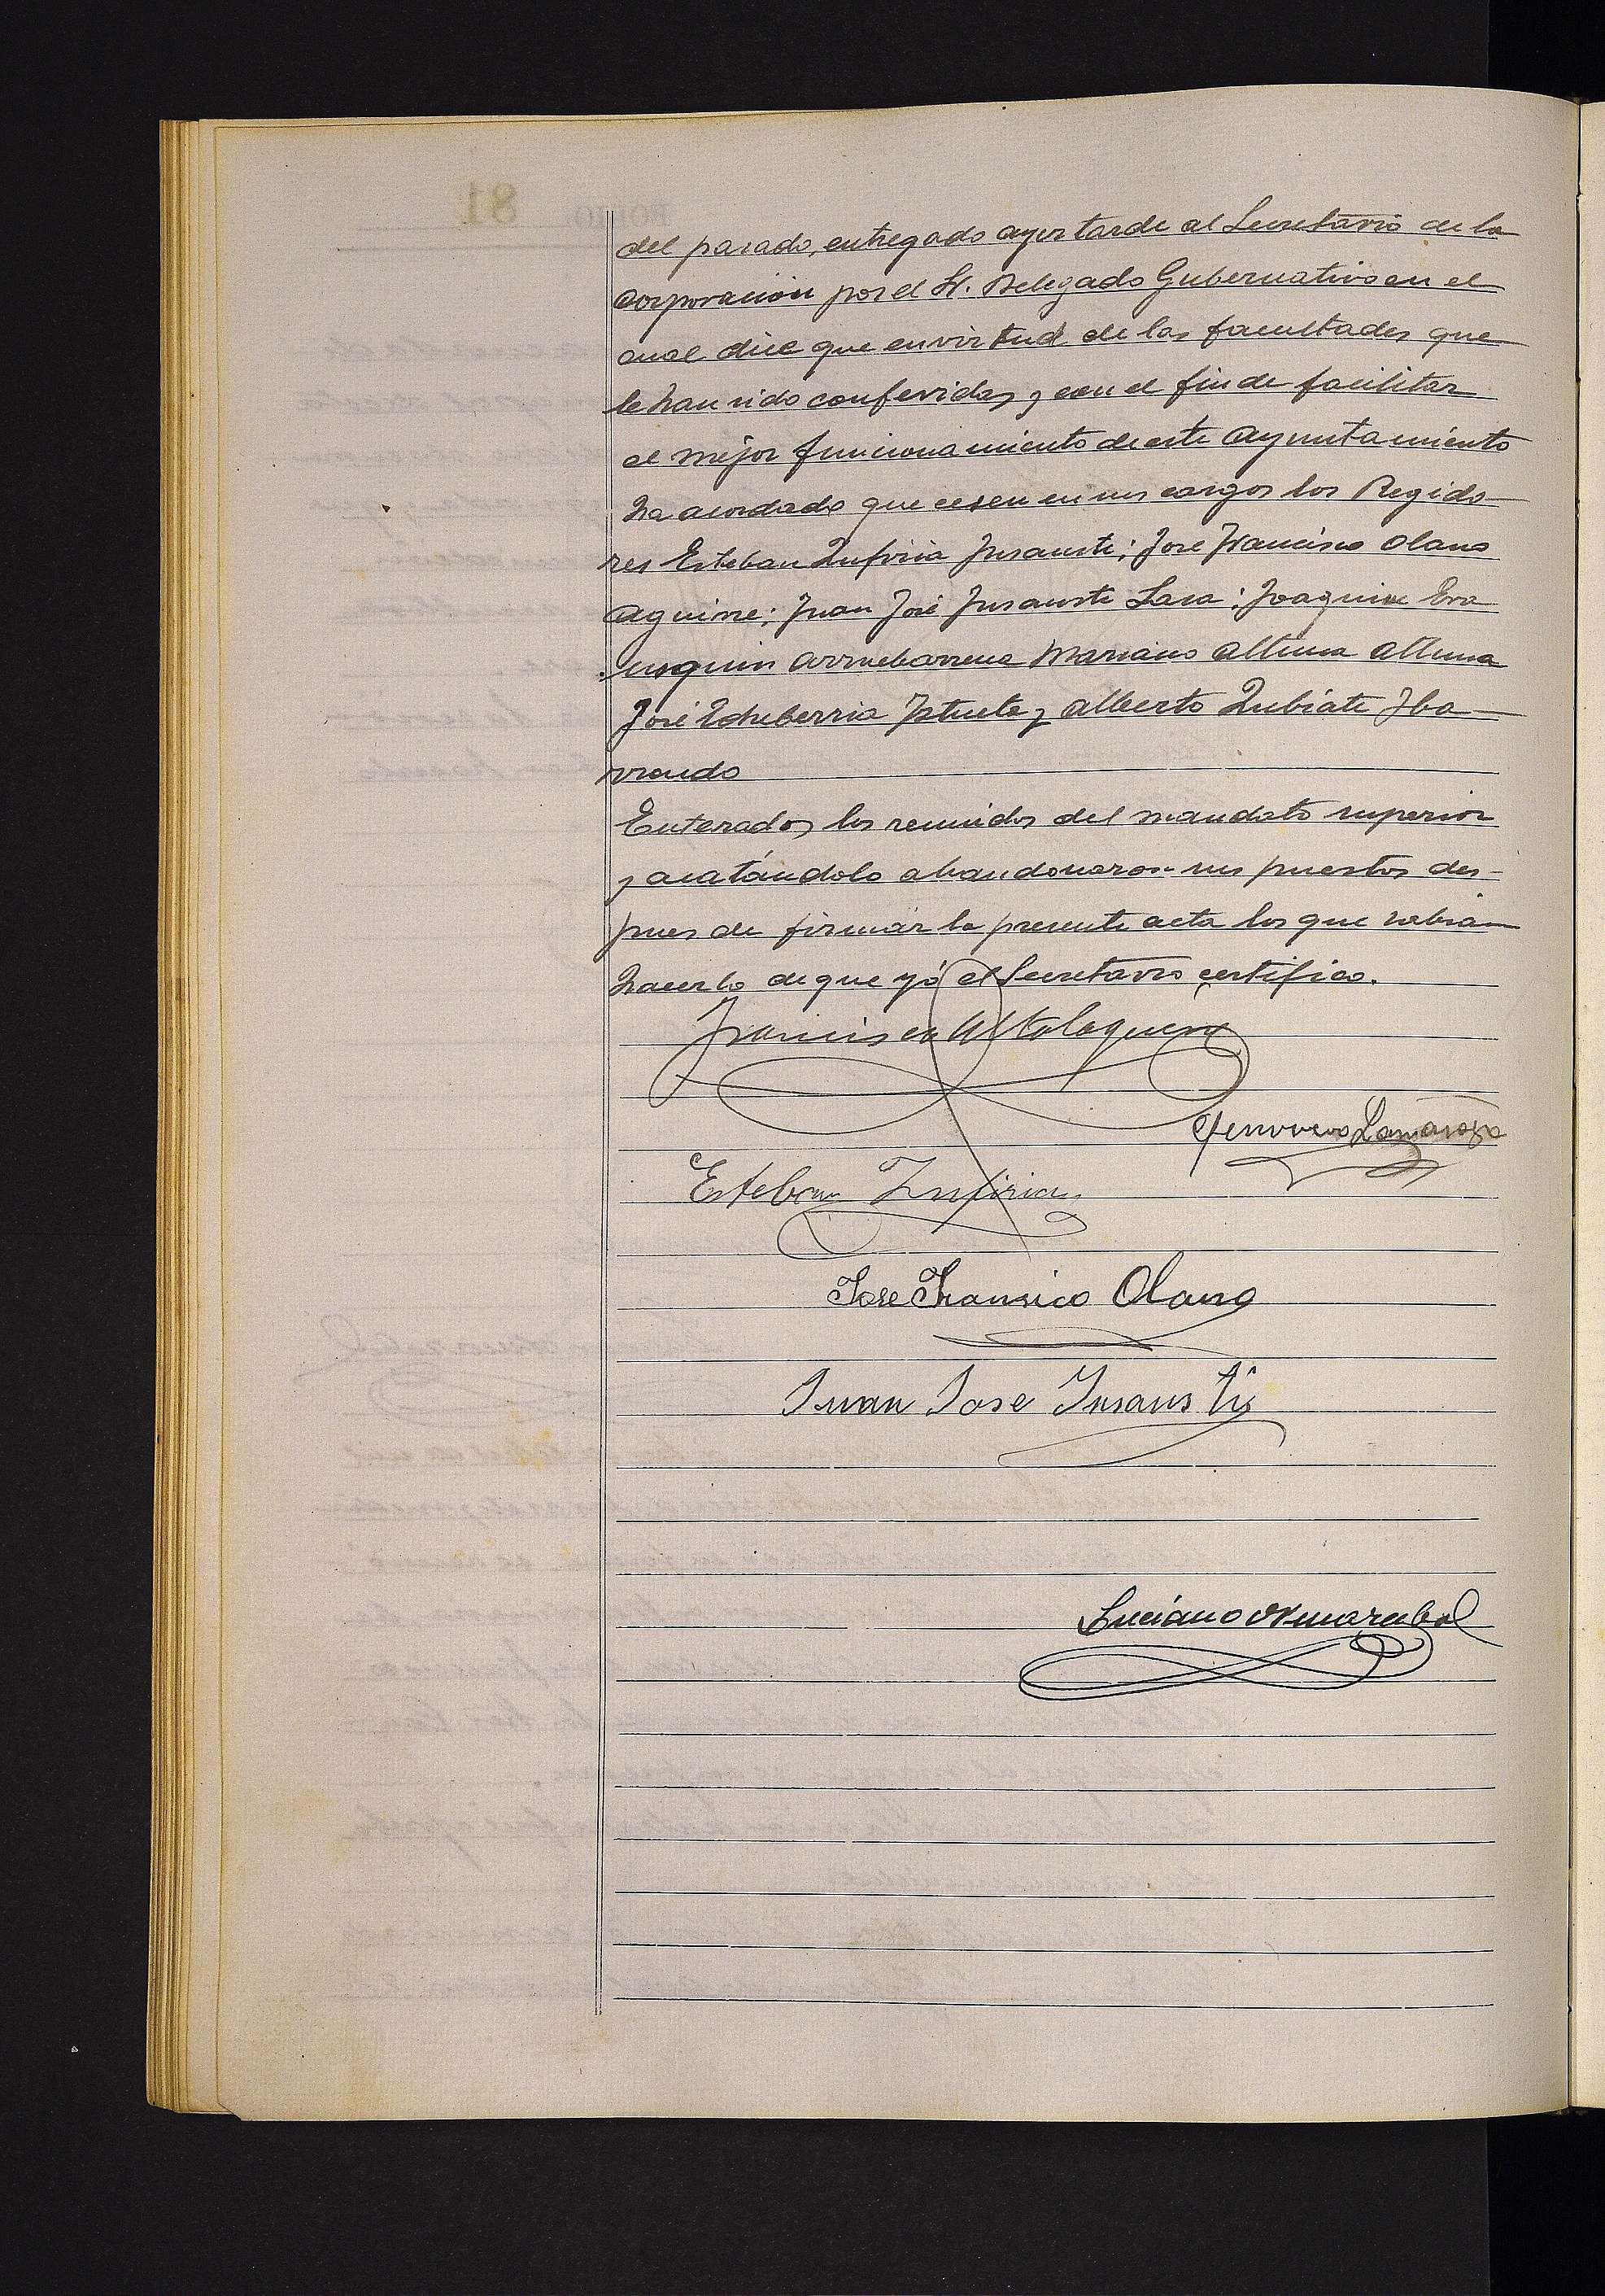 del pasado, entregado ayer tarde al Secretario de la
Corporación por el Sr. Delegado Gubernativo en el
cual dice que en virtud de las facultades que
le han sido conferidas y con el fin de facilitar
el mejor funcionamiento de este Ayuntamiento
ha acordado que cesen en sus cargos los Regido-
res Esteban Zufiria Insausti; José Francisco Olano
Aguirre; Juan José Insausti Lasa; Joaquin
Arruebarrena Mariano Altuna Altuna
José Echeberria y Alberto Zubiate Iba-
rrondo
Enterados los reunidos del mandato superior
y acatándolo abandonaron sus puestos des-
pues de firmar la presente acta los que sabian
hacerlo de que yó el Secretario certifico.
Francisco Altolaguirre
Esteban Zufiria
Jose Fransico Olano
Juan Jose Insausti
Luciano